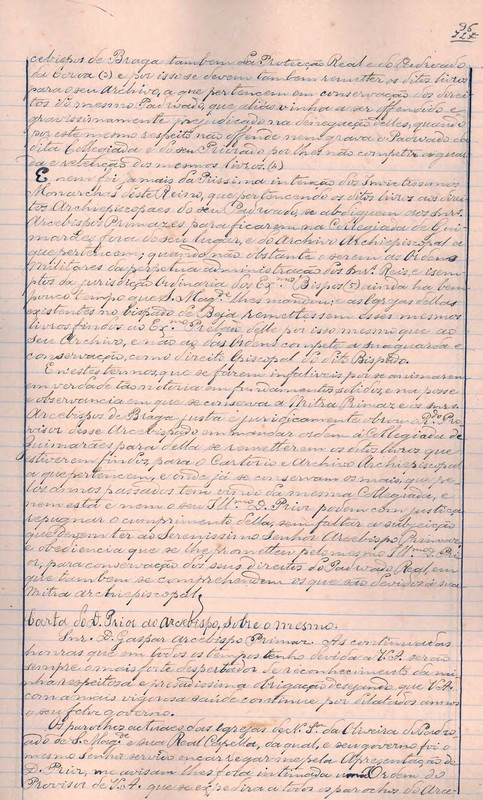 96
cebispos de Braga tambem da Protecção Real e do Padroado
da Coroa (2) e por isso se devem tambem remetter os ditos livros
para o seu Archivo, a que pertencem em conservação dos direi
tos do mesmo Padroado, que aliás vinha a ser offendido e
gravissimamente prejudicado na denegação delles, quando
por este mesmo respeito não offende nem grava o Padroado da
dita Collegiada e do seu Priorado por lhes não competir a guar
da e retenção dos mesmos livros. (4)
E nem foi jamais da Piissima intenção dos Invictissimos
Monarchas deste Reino, que pertencendo os ditos livros aos direi
tos Archiepiscopaes do seu Padroado, se abdiquem aos Snrs.
Arcebispos Primazes para ficarem na Collegiada de Gui
marães fora do seu lugar, e do Archivo Archiepiscopal a
que pertencem; quando não obstante o serem de Ordens
Militares da perpetua administração dos Snrs. Reis, e isem
ptos da jurisdição Ordinaria dos Ex.mos Bispos (5) ainda ha bem
pouco tempo que S. Mag.de lhes mandou; e as Egrejas dellas
existentes no bispado de Beja remettessem esses mesmos
livros findos ao Ex.mo Prelado delle por isso mesmo que ao
seu Archivo, e não ás das Ordens compete a sua guarda e
conservação, como direito Episcopal do dito Bispado.
E nestes termos, que se fazem infaliveis por se animarem
em verdade tão notoria em fundamentos solidos, e na posse
e observancia em que se conserva a Mitra Primaz e os Snrs.
Arcebispos de Braga, justa e juridicamente obrou o R.do Pro
visor desse Arcebispado em mandar ordem á Collegiada de
Guimarães para della se remetterem os ditos livros que
estiverem findos, para o Cartorio e Archivo Archiepiscopal
a que pertencem, e onde já se conservam os mais, que pe
los annos passados tem vindo da mesma Collegiada, e
nem esta e nem o seu Ill.mo D. Prior podem com justiça
repugnar o cumprimento della, sem faltar a subjeição
que devem ter ao Serenissimo Senhor Arcebispo Primaz,
e obediencia que se lhe prometteu pelo mesmo Ill.mo D. Pri
or, para conservação dos seus direitos do Padroado Real em
que tambem se comprehendem os que são devidos á sua
Mitra archiepiscopal.
Carta do D. Prior ao Arcebispo, sobre o mesmo.
Snr. D. Gaspar Arcebispo Primaz. As continuadas
honras que em todos os tempos tenho devido a V. A. serão
sempre o mais forte despertador do reconhecimento da mi
nha respeitosa e fidelissima obrigação desejando que V. A.
com a mais vigorosa saude continue por dilatados annos
o seu feliz governo.
Os parochos actuaes das Egrejas de N. Sr.a da Oliveira do Padro
ado de S. Mag.de e sua Real Capella, da qual, e seu governo foi o
mesmo Senhor servido encarregar-me pela Apresentação de
D. Prior, me avisam lhes fora intimada uma Ordem do
Provisor de V. A. que se expedira a todos os parochos do Arce